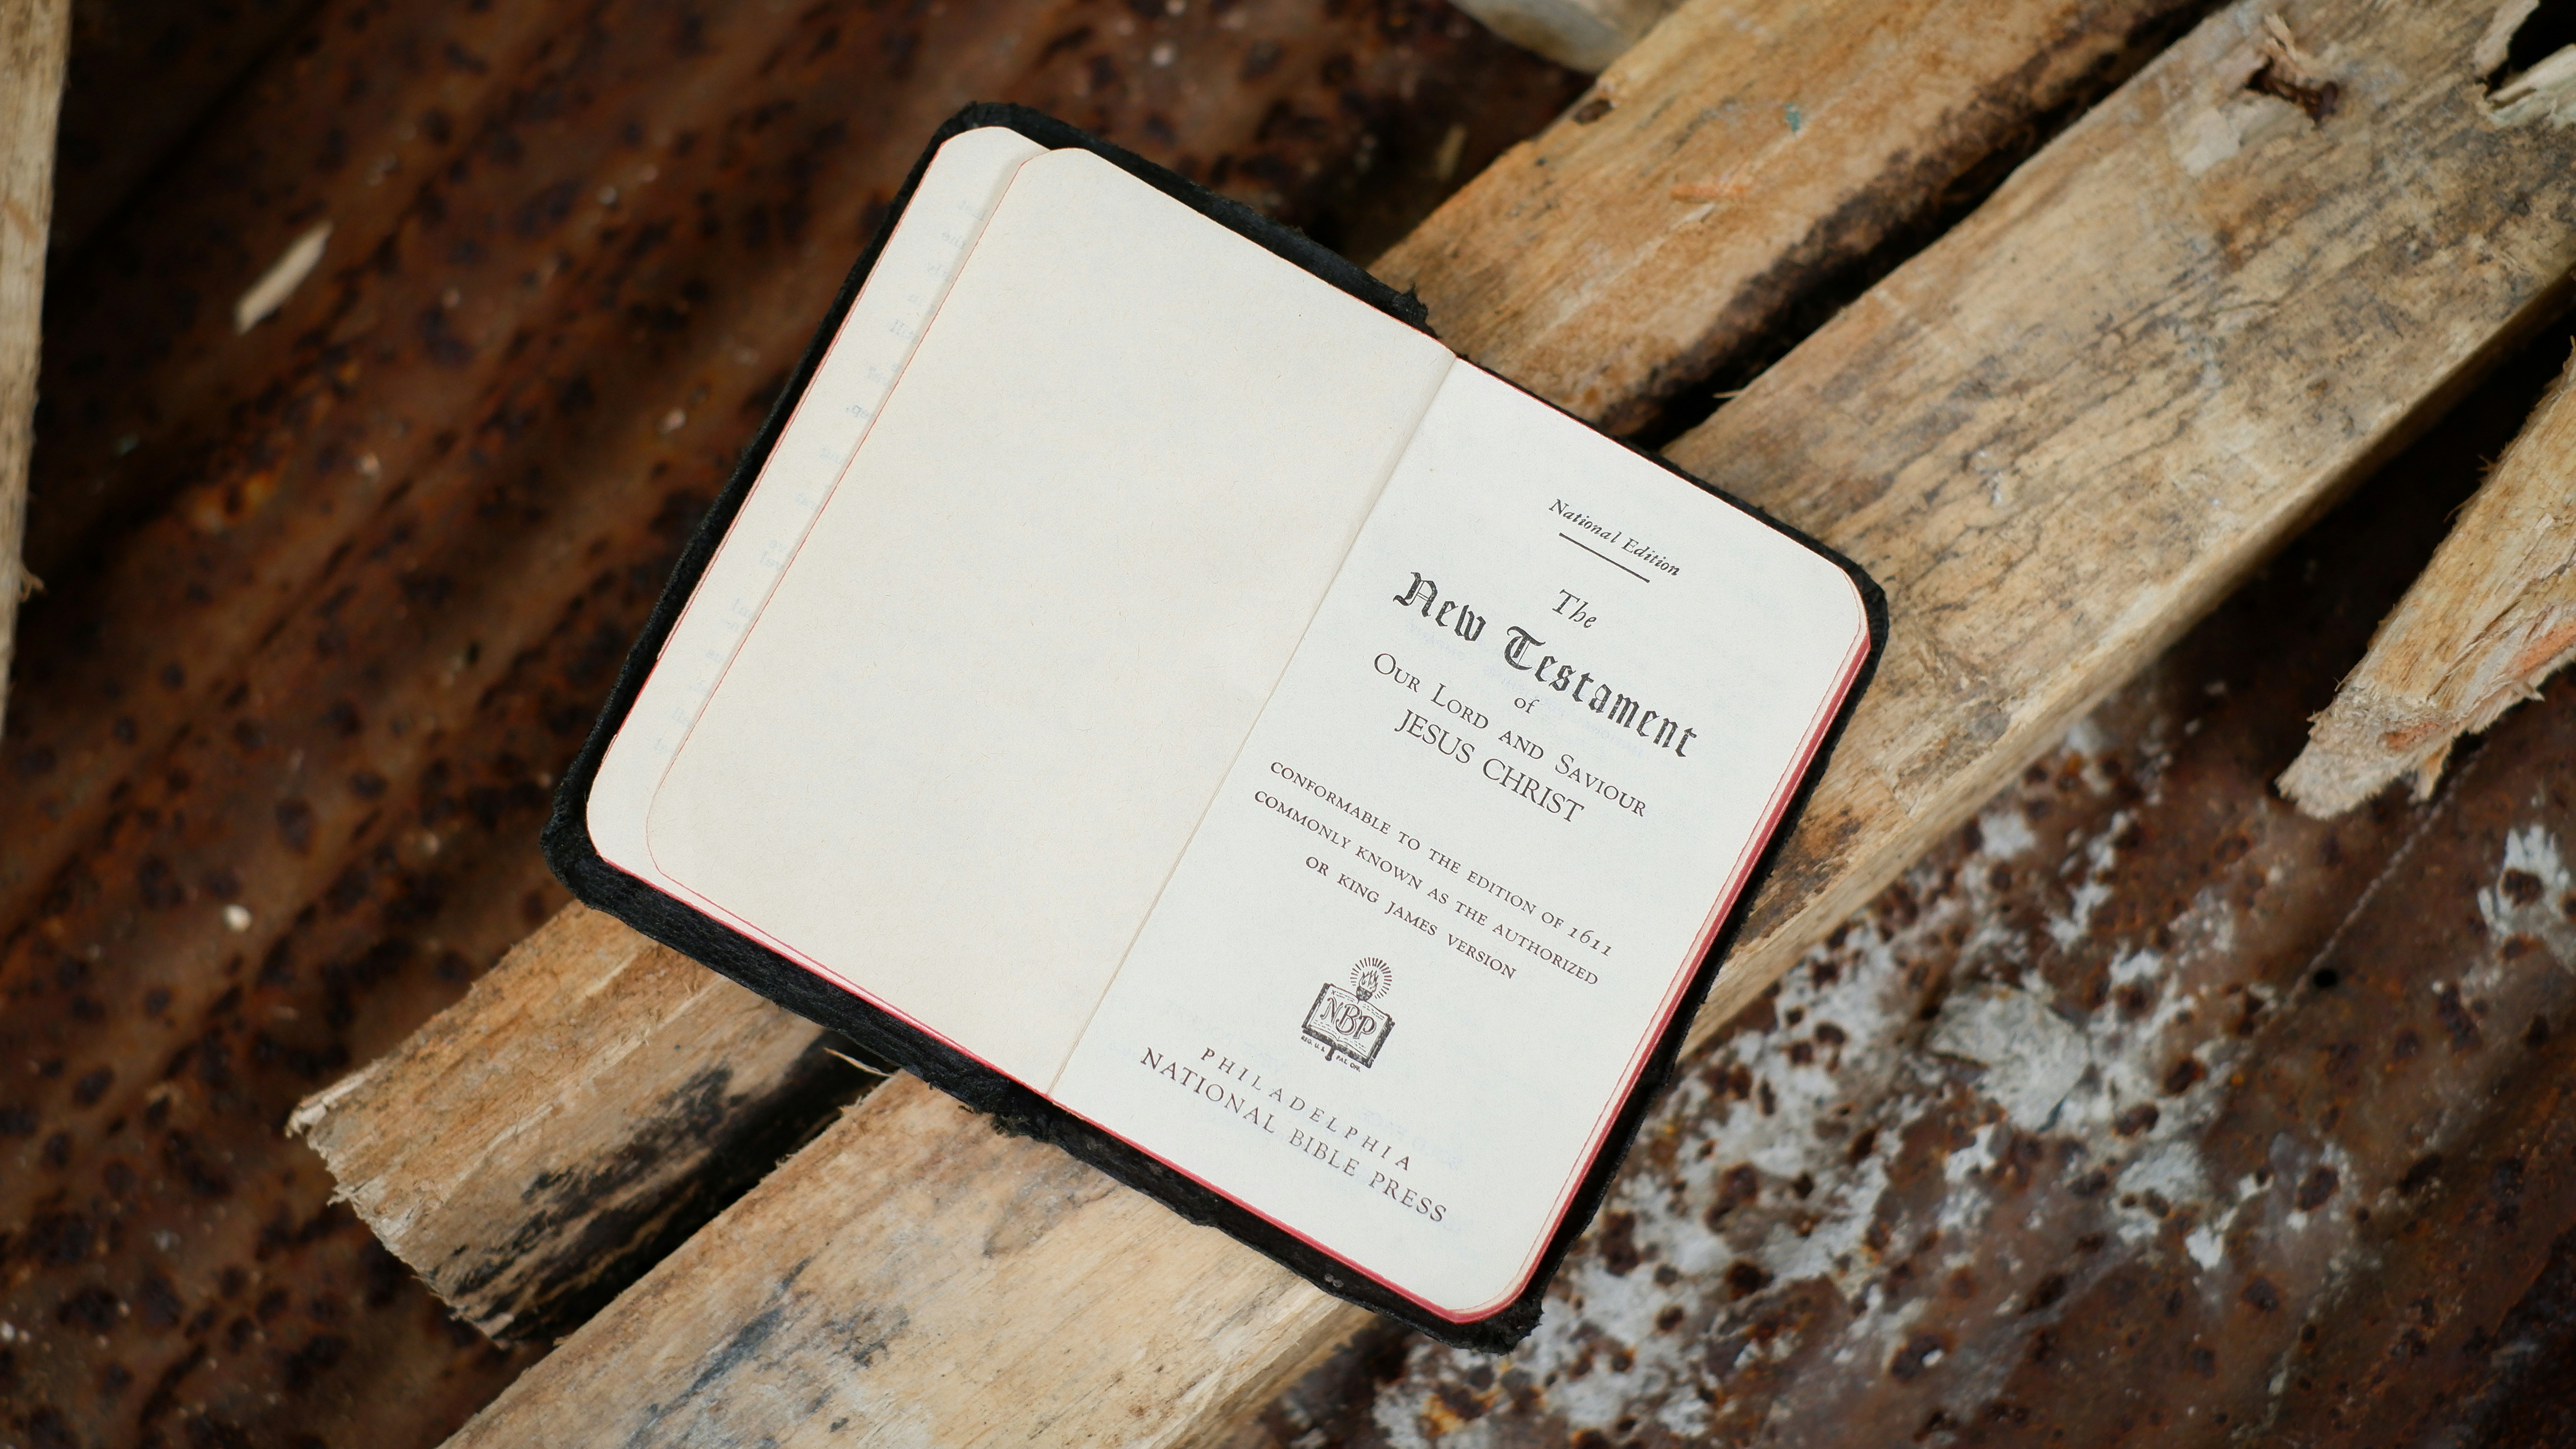 National Edition
The
New Testament
of
OUR LORD AND SAVIOUR
JESUS CHRIST
CONFORMABLE TO THE EDITION OF 1611
COMMONLY KNOWN AS THE AUTHORIZED
OR KING JAMES VERSION
NBP
REG. U. S. PAT. OFF.
PHILADELPHIA
NATIONAL BIBLE PRESS